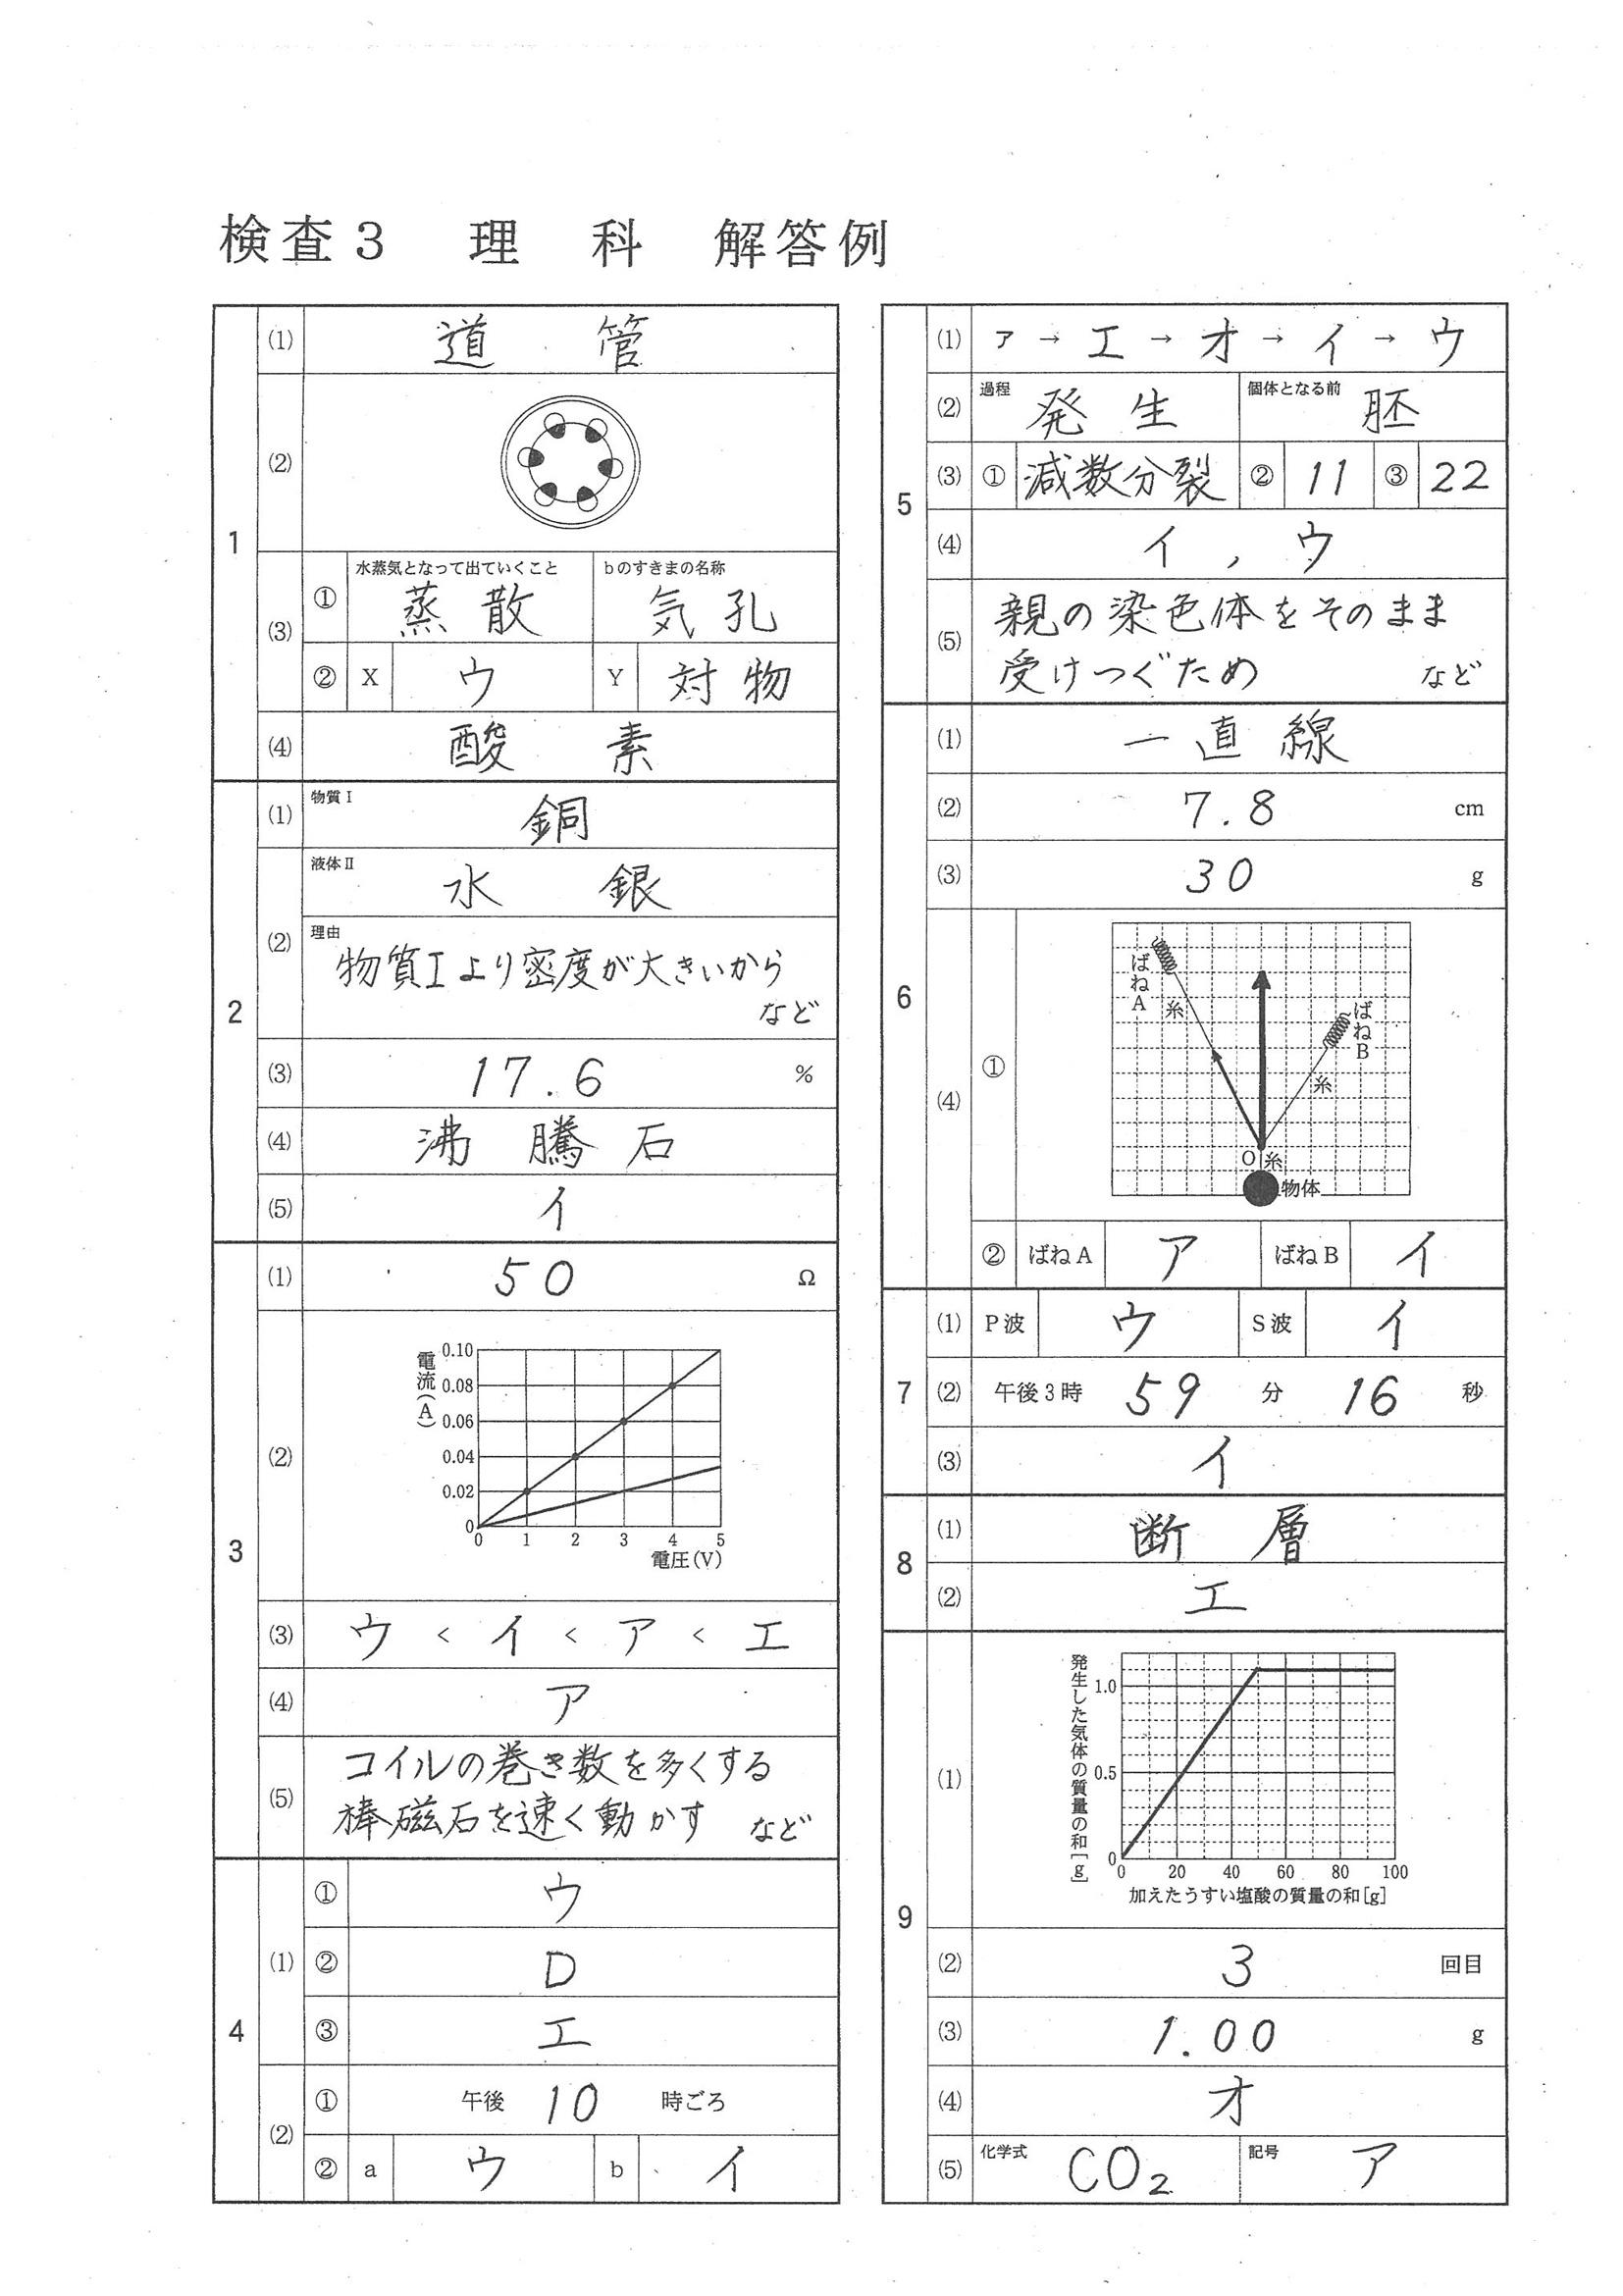 検査3 理科 解答例
1
(1) 道管
(2)
(3) ① 水蒸気となって出ていくこと 蒸散 bのすきまの名称 気孔
② X ウ Y 対物
(4) 酸素
2
(1) 物質Ⅰ 銅
(2) 液体Ⅱ 水銀
理由 物質Ⅰより密度が大きいから
など
(3) 17.6 %
(4) 沸騰石
(5) イ
3
(1) 50 Ω
(2)
電流(A)
0.10
0.08
0.06
0.04
0.02
0
0 1 2 3 4 5
電圧(V)
(3) ウ < イ < ア < エ
(4) ア
(5) コイルの巻き数を多くする
棒磁石を速く動かす など
4
(1) ① ウ
② D
③ エ
(2) ① 午後 10 時ごろ
② a ウ b イ
5
(1) ア → エ → オ → イ → ウ
(2) 過程 発生 個体となる前 胚
(3) ① 減数分裂 ② 11 ③ 22
(4) イ , ウ
(5) 親の染色体をそのまま
受けつぐため など
6
(1) 一直線
(2) 7.8 cm
(3) 30 g
(4) ①
ばねA
糸
ばねB
糸
O 糸
物体
② ばねA ア ばねB イ
7
(1) P波 ウ S波 イ
(2) 午後3時 59 分 16 秒
(3) イ
8
(1) 断層
(2) エ
9
(1)
発生した気体の質量の和[g]
1.0
0.5
0
0 20 40 60 80 100
加えたうすい塩酸の質量の和[g]
(2) 3 回目
(3) 1.00 g
(4) オ
(5) 化学式 CO₂ 記号 ア